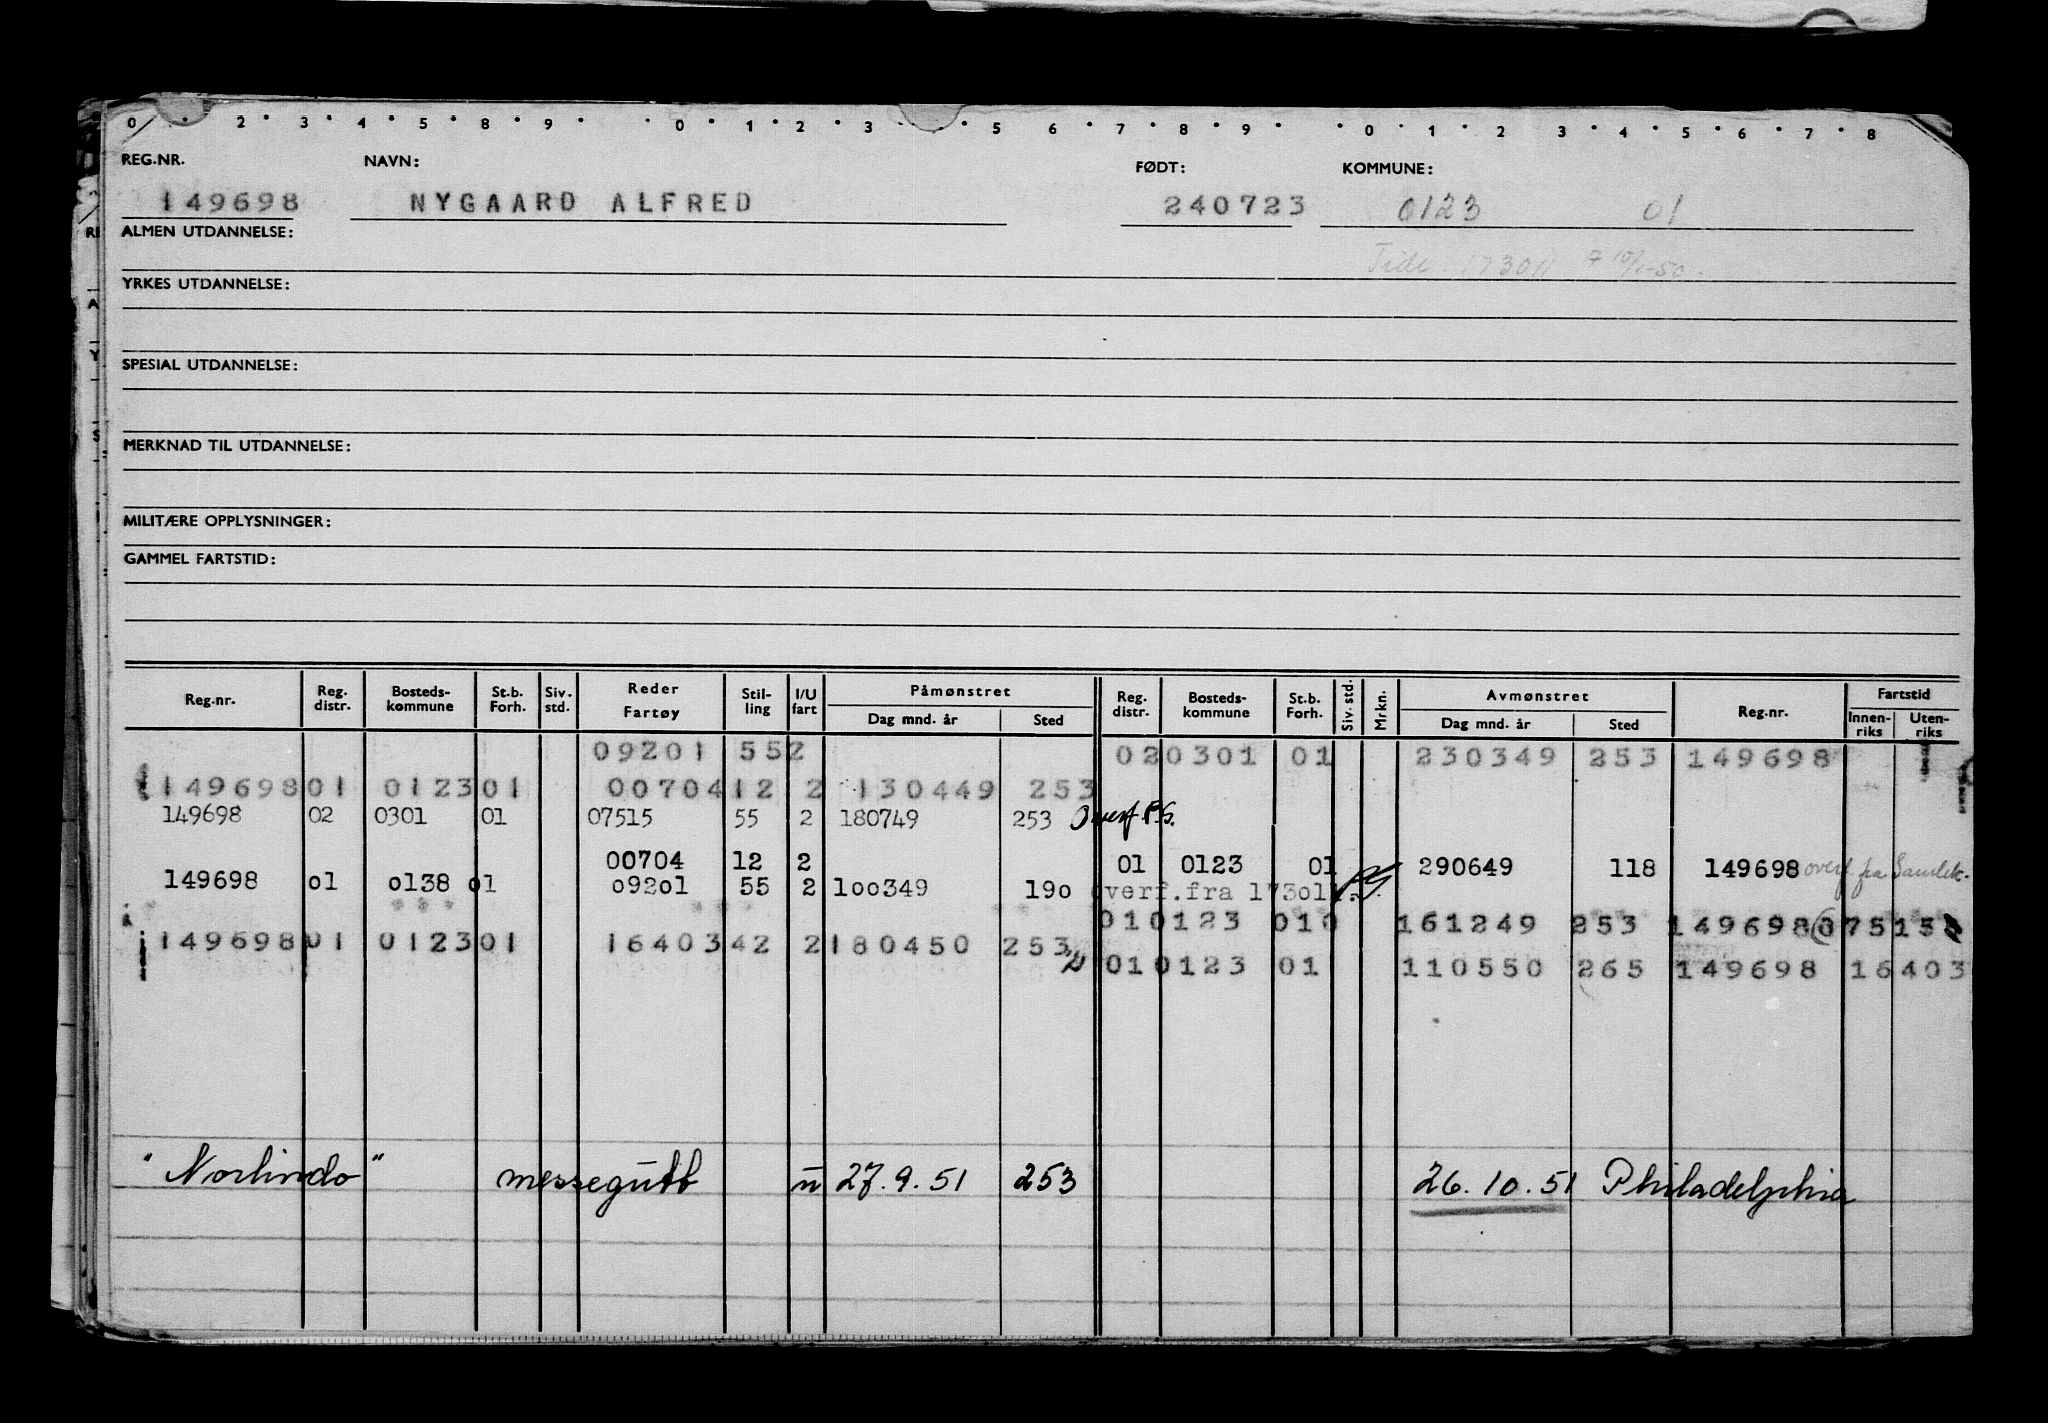 0 . 2 . 3 . 4 . 5 . 8 . 9 . 0 . 1 . 2 . 3 . . 5 6 . 7 . 8 . 9 . . 0 . 1 . 2 . 3 . 4 . 5 . 6 . 7 . 8
REG.NR. NAVN: FØDT: KOMMUNE:
149698 NYGAARD ALFRED 240723 0123 01
ALMEN UTDANNELSE:
Tidl. 173011 10/1-50.
YRKES UTDANNELSE:
SPESIAL UTDANNELSE:
MERKNAD TIL UTDANNELSE:
MILITÆRE OPPLYSNINGER:
GAMMEL FARTSTID:
Reg.nr. Reg. distr. Bosteds- kommune St.b. Forh. Siv. std. Reder Fartøy Stil- ling I/U fart Påmønstret Dag mnd. år Sted Reg. distr. Bosteds- kommune St.b. Forh. Siv. std. Mrkn. Avmønstret Dag mnd. år Sted Reg.nr. Fartstid Innen- riks Uten- riks
09201 552 020301 01 230349 253 149698
149698 01 0123 01 00704 12 2 130449 253
149698 02 0301 01 07515 55 2 180749 253 Overf. P.S.
00704 12 2 01 0123 01 290649 118 149698 overf. fra Samlek.
149698 01 0138 01 09201 55 2 100349 190 overf.fra 173011.
010123 010 161249 253 149698 07515
149698 01 0123 01 16403 42 2 180450 253
010123 01 110550 265 149698 16403
"Norlindo" messegutt u 27.9.51 253 26.10.51 Philadelphia